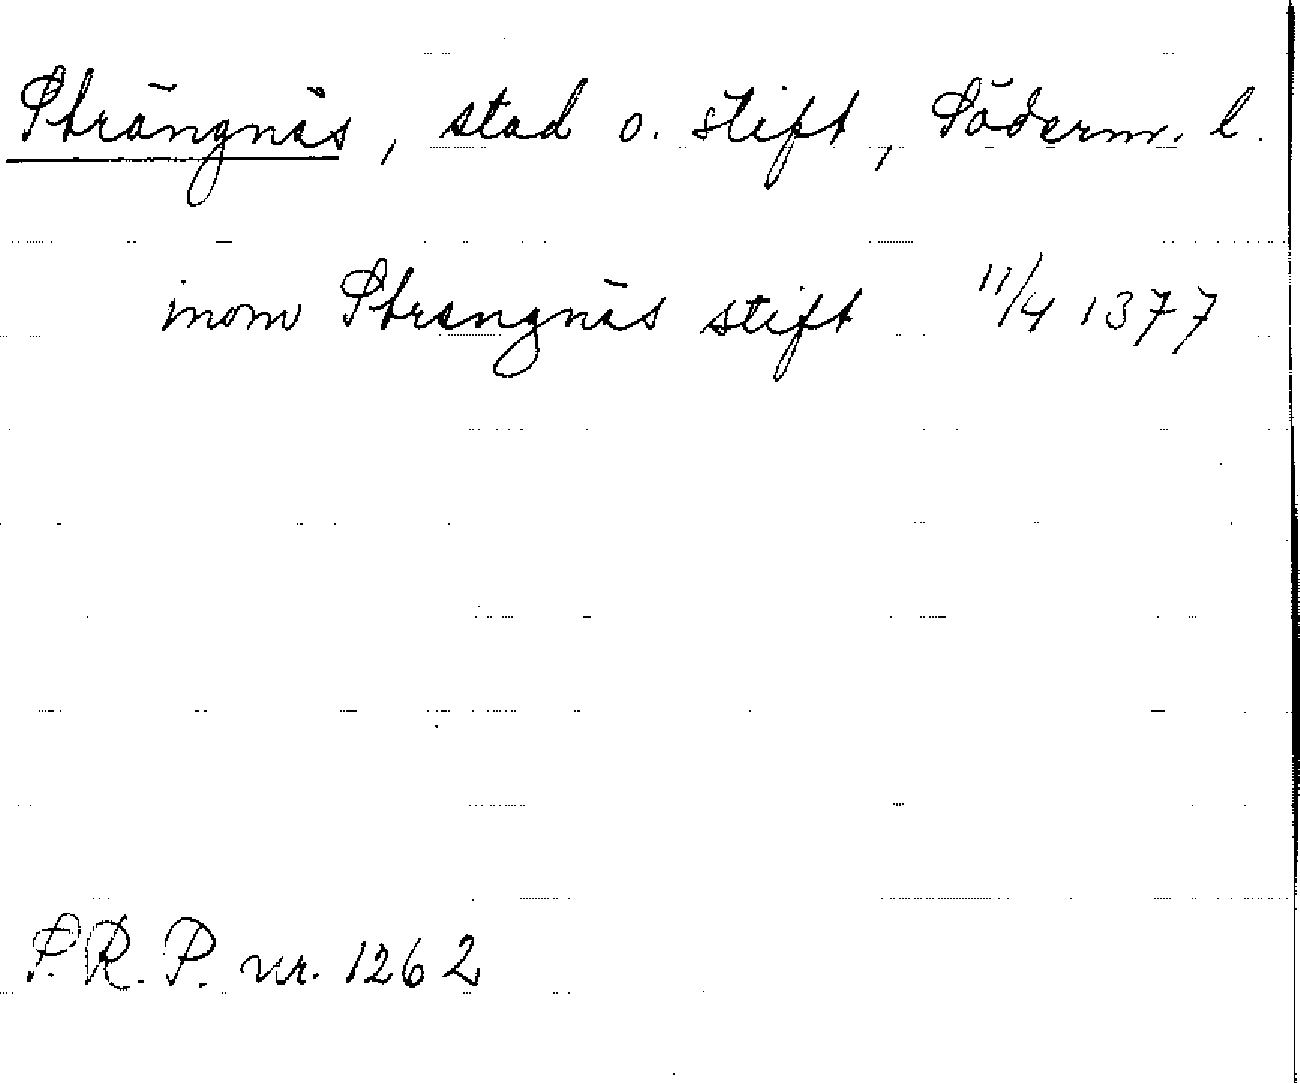 Strängnäs, stad o. stift, Söderm. l.
inom Strengnäs stift 11/4 1377
S.R.P. nr. 1262